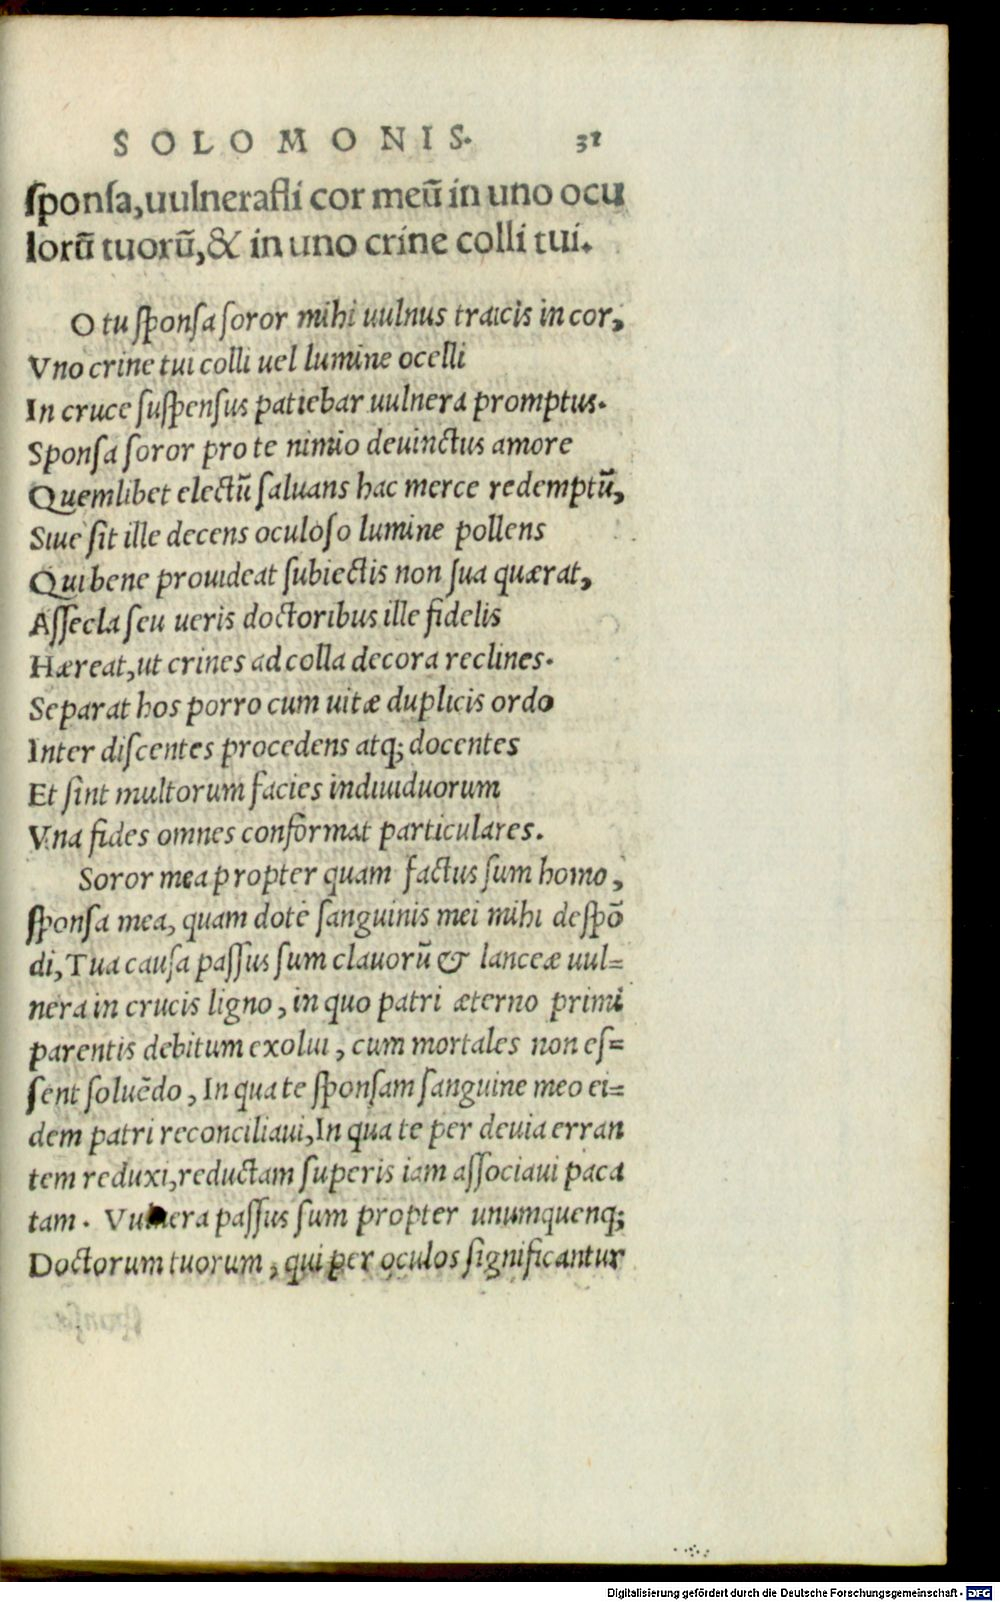 SOLOMONIS. 31
ſponſa,uulneraſti cor meũ in uno ocu
lorũ tuorũ,& in uno crine colli tui.
O tu ſponſa ſoror mihi uulnus traicis in cor,
Vno crine tui colli uel lumine ocelli
In cruce ſuſpenſus patiebar uulnera promptus.
Sponſa ſoror pro te nimio deuinctus amore
Quemlibet electũ ſaluans hac merce redemptũ,
Siue ſit ille decens oculoſo lumine pollens
Qui bene prouideat ſubiectis non ſua quærat,
Aſſecla ſeu ueris doctoribus ille fidelis
Hæreat,ut crines ad colla decora reclines.
Separat hos porro cum uitæ duplicis ordo
Inter diſcentes procedens atq; docentes
Et ſint multorum facies indiuiduorum
Vna fides omnes conformat particulares.
Soror mea propter quam factus ſum homo,
ſponſa mea, quam dote ſanguinis mei mihi deſpõ
di,Tua cauſa paſſus ſum clauorũ & lanceæ uul=
nera in crucis ligno, in quo patri æterno primi
parentis debitum exolui, cum mortales non eſ=
ſent ſoluẽdo, In qua te ſponſam ſanguine meo ei=
dem patri reconciliaui,In qua te per deuia erran
tem reduxi,reductam ſuperis iam aſſociaui paca
tam. Vulnera paſſus ſum propter unumquenq;
Doctorum tuorum, qui per oculos ſignificantur
Digitalisierung gefördert durch die Deutsche Forschungsgemeinschaft - DFG